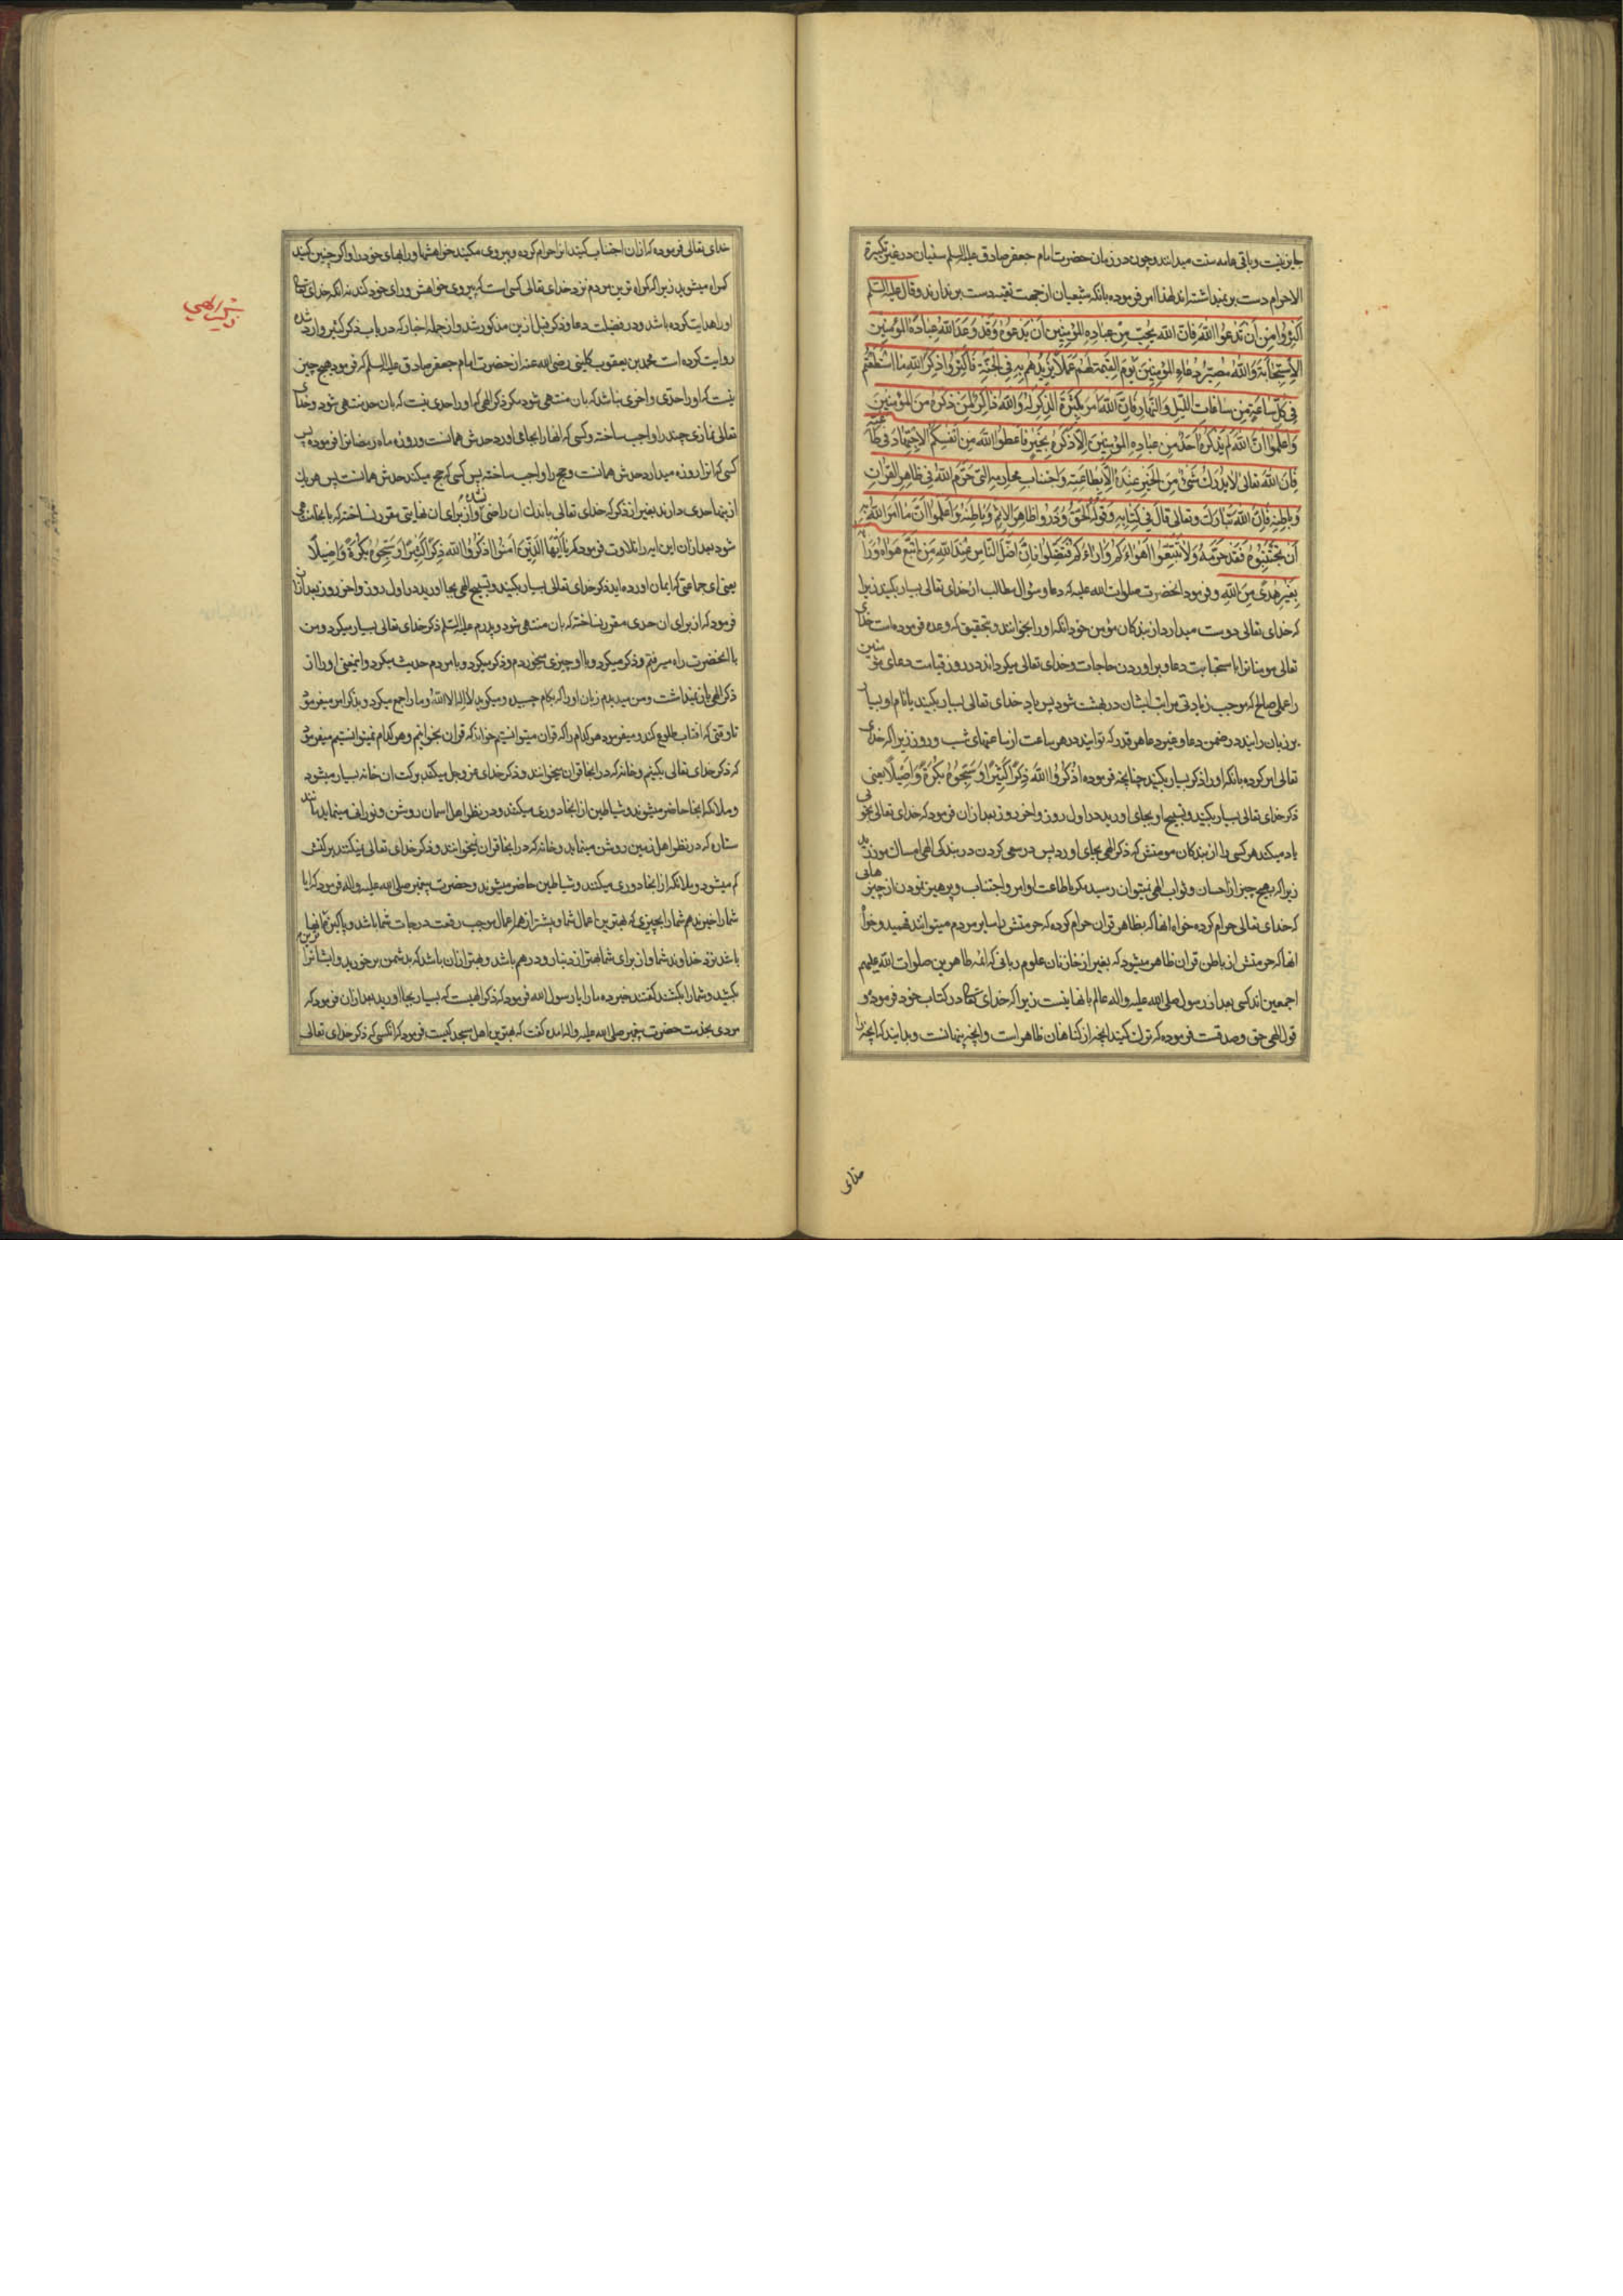 جایز نیست و باقی عامه سنت میدانند و چون در زمان حضرت امام جعفر صادق علیه السلم سنیان در غیر تکبیرة
الاحرام دست بر نمیداشته‌اند لهذا امر فرموده بانکه شیعیان از جهت تقیه دست بر ندارند و قال علیه السلم
اَکْثِرُوا مِنْ اَنْ تَدْعُوا اللّٰهَ فَاِنَّ اللّٰهَ یُحِبُّ مِنْ عِبادِهِ المُؤْمِنِینَ اَنْ یَدْعُوهُ وَقَدْ وَعَدَ اللّٰهُ عِبادَهُ المُؤْمِنِینَ
الاِسْتِجابَةَ وَاللّٰهُ مُصَیِّرٌ دُعاءَ المُؤْمِنِینَ یَوْمَ القِیٰمَةِ لَهُمْ عَمَلًا یَزِیدُهُمْ بِهِ فِی الجَنَّةِ فَاَکْثِرُوا ذِکْرَ اللّٰهِ مَا اسْتَطَعْتُمْ
فِی کُلِّ ساعَةٍ مِنْ ساعاتِ اللَّیْلِ وَالنَّهارِ فَاِنَّ اللّٰهَ اَمَرَ بِکَثْرَةِ الذِّکْرِ لَهُ وَاللّٰهُ ذاکِرٌ لِمَنْ ذَکَرَهُ مِنَ المُؤْمِنِینَ
وَاعْلَمُوا اَنَّ اللّٰهَ لَمْ یَذْکُرْهُ اَحَدٌ مِنْ عِبادِهِ المُؤْمِنِینَ اِلّا ذَکَرَهُ بِخَیْرٍ فَاَعْطُوا اللّٰهَ مِنْ اَنْفُسِکُمُ الاِجْتِهادَ فی طاعَتِهِ
فَاِنَّ اللّٰهَ تَعالٰی لا یُدْرَكُ شَیْءٌ مِنَ الخَیْرِ عِنْدَهُ اِلّا بِطاعَتِهِ وَاجْتِنابِ مَحارِمِهِ الَّتی حَرَّمَ اللّٰهُ فی ظاهِرِ القُرْآنِ
وَباطِنِهِ فَاِنَّ اللّٰهَ تَبارَكَ وَتَعالٰی قالَ فی کِتابِهِ وَقَوْلُهُ الحَقُّ وَذَرُوا ظاهِرَ الاِثْمِ وَباطِنَهُ وَاعْلَمُوا اَنَّ ما اَمَرَ اللّٰهُ بِهِ
اَنْ تَجْتَنِبُوهُ فَقَدْ حَرَّمَهُ وَلا تَتَّبِعُوا اَهْواءَکُمْ وَآراءَکُمْ فَتَضِلُّوا فَاِنَّ اَضَلَّ النّاسِ عِنْدَ اللّٰهِ مَنِ اتَّبَعَ هَواهُ وَرَأْیَهُ
بِغَیْرِ هُدًی مِنَ اللّٰهِ و فرمود انحضرت صلوات الله علیه که دعا و سؤال مطالب از خدای تعالی بسیار بکنید زیرا
که خدای تعالی دوست میدارد از بندکان مؤمن خود انکه او را بخوانند و بتحقیق که وعده فرموده است خدای
تعالی مومنانرا باستجابت دعا و براوردن حاجات و خدای تعالی میکرداند در روز قیامت دعای مؤمنین
را عملی صالح که موجب زیادتی مراتب ایشان در بهشت شود پس یاد خدای تعالی بسیار بکنید یا نام او بسیار
بر زبان رانید در ضمن دعا و غیر دعا هر قدر که توانید در هر ساعت از ساعتهای شب و روز زیرا که خدای
تعالی امر کرده بانکه او را ذکر بسیار بکنید چنانچه فرموده اُذْکُرُوا اللّٰهَ ذِکْرًا کَثِیرًا وَسَبِّحُوهُ بُکْرَةً وَاَصِیلًا یعنی
ذکر خدای تعالی بسیار بکنید و تسبیح او بجای اورید در اول روز و اخر روز بعد ازان فرمود که خدای تعالی بخوبی
یاد میکند هر کسی را از بندکان مومنش که ذکر الهی بجای اورد پس در سعی کردن در بندکی الهی امساك مورزید
زیرا که بهیچ چیز از احسان و ثواب الهی نمیتوان رسید مکر باطاعت اوامر و اجتناب و پرهیز نمودن از چیزهائی
که خدای تعالی حرام کرده خواه انها که بظاهر قران حرام کرده که حرمتش را سایر مردم میتوانند فهمید و خواه
انها که حرمتش از باطن قران ظاهر میشود که بغیر از خازنان علوم ربانی که ائمه طاهرین صلوات الله علیهم
اجمعین اند کسی بعد از رسول صلی الله علیه واله عالم بانها نیست زیرا که خدای تعالی در کتاب خود فرموده و
قول الهی حق و صدقست فرموده که ترك کنید انچه از کناهان ظاهر است و انچه پنهانست و بدانید که انچه را
خدای
خدای تعالی فرموده که ازان اجتناب کنید انرا حرام کرده و پیروی مکنید خواهشها و رایهای خود را و اکر چنین کنید
کمراه میشوید زیرا که کمراه ترین مردم نزد خدای تعالی کسی است که پیروی خواهش و رای خود کند نه انکه خدای تعالی
او را هدایت کرده باشد و در فضیلت دعا و ذکر قبل ازین مذکور شد و از جمله اخبار که در باب ذکر کثیر وارد شده
روایت کرده است محمد بن یعقوب کلینی رضی الله عنه از حضرت امام جعفر صادق علیه السلم که فرمود هیچ چیز
نیست که او را حدی و اخری نباشد که بان منتهی شود مکر ذکر الهی که او را حدی نیست که بان حد منتهی شود و خدای
تعالی نمازی چند را واجب ساخته و کسی که انها را بجای اورد حدش همانست و روزه ماه رمضانرا فرموده پس
کسی که انرا روزه میدارد حدش همانست و حج را واجب ساخته پس کسی که حج میکند حدش همانست پس هر یك
ازینها حدی دارند بغیر از ذکر که خدای تعالی باندك ان راضی نشده و از برای ان نهایتی مقرر نساخته که بانجا منتهی
شود بعد ازان این ایه را تلاوت فرمود که یا اَیُّهَا الَّذِینَ آمَنُوا اذْکُرُوا اللّٰهَ ذِکْرًا کَثِیرًا وَسَبِّحُوهُ بُکْرَةً وَاَصِیلًا
یعنی ای جماعتی که ایمان اورده‌اید ذکر خدای تعالی بسیار بکنید و تسبیح الهی بجا اورید در اول روز و اخر روز بعد ازان
فرمود که از برای ان حدی مقرر نساخته که بان منتهی شود و پدرم علیه السلم ذکر خدای تعالی بسیار میکرد و من
با انحضرت راه میرفتم و ذکر میکرد و با او چیزی میخوردم و ذکر میکرد و با مردم حدیث میکرد و اینمعنی او را از
ذکر الهی باز نمیداشت و من میدیدم زبان او را که بکام چسبیده و میکوید لا اله الا الله و ما را جمع میکرد و بذکر امر میفرمود
تا وقتی که افتاب طلوع کند و میفرمود هر کدام را که قران میتوانستیم خواند که قران بخوانیم و هر کدام نمیتوانستیم میفرمود
که ذکر خدای تعالی بکنیم و خانه که در انجا قران میخوانند و ذکر خدای عز و جل میکنند برکت ان خانه بسیار میشود
و ملائکه انجا حاضر میشوند و شیاطین از انجا دوری میکنند و در نظر اهل اسمان روشن و نورانی مینماید مانند
ستاره که در نظر اهل زمین روشن مینماید و خانه که در انجا قران نمیخوانند و ذکر خدای تعالی نمیکنند برکتش
کم میشود و ملائکه از انجا دوری میکنند و شیاطین حاضر میشوند و حضرت پیغمبر صلی الله علیه واله فرمود که ایا
شما را خبر ندهم شما را بچیزی که بهترین اعمال شما و پیشتر از همه اعمال موجب رفعت درجات شما باشد و پاکیزه‌ترین انها
باشد نزد خداوند شما و از برای شما بهتر از دینار و درهم باشد و بهتر ازان باشد که بدشمن برخورید و ایشانرا
بکشید و شما را بکشند کفتند خبر ده ما را یا رسول الله فرمود که ذکر الهیست که بسیار بجا اورید بعد ازان فرمود که
مردی بخدمت حضرت پیغمبر صلی الله علیه واله امده کفت که بهترین اهل مسجد کیست فرمود که انکسی که ذکر خدای تعالی